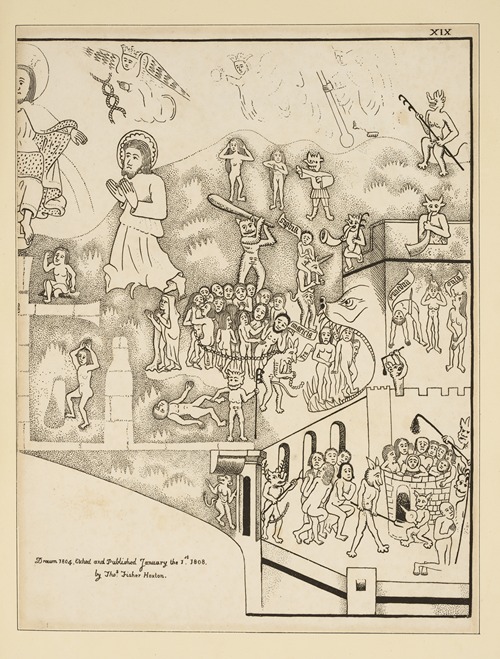 XIX
Drawn 1804, Etched and Published January the 1.st 1808.
by Tho.s Fisher Hoxton.